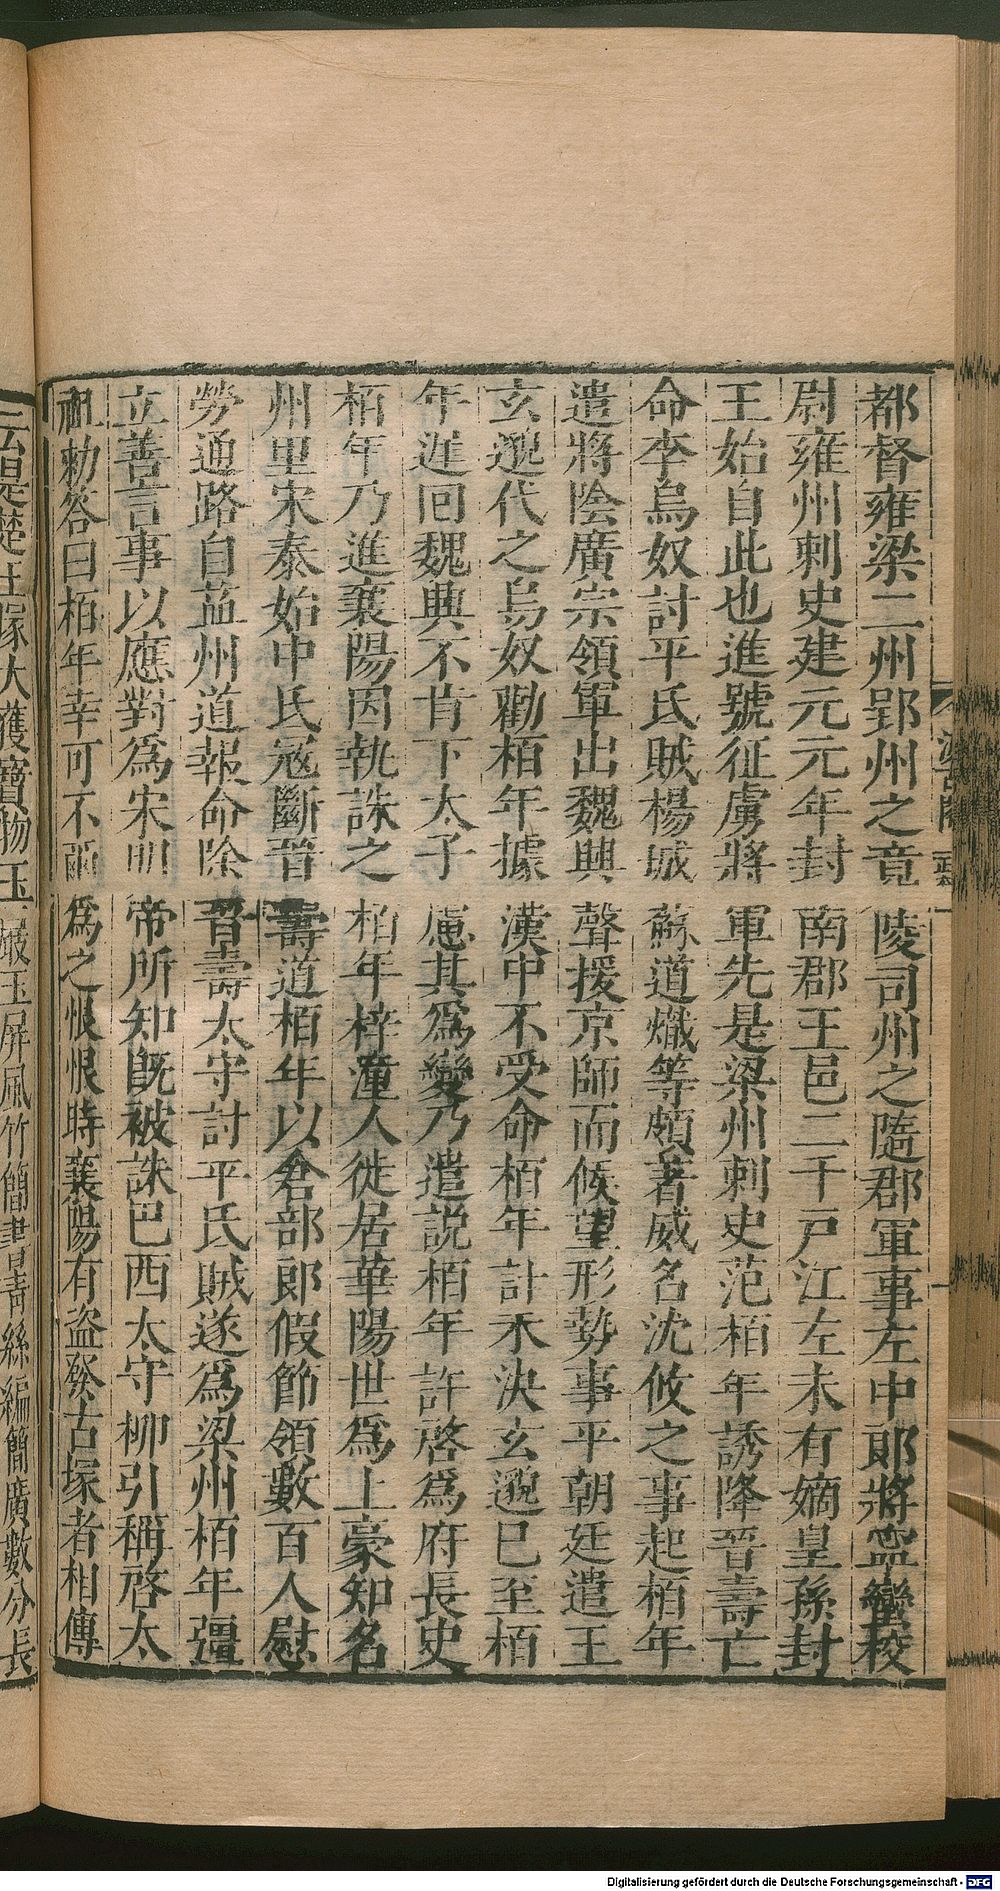 都督雍梁二州郢州之竟陵司州之隨郡軍事左中郎將寧蠻校
尉雍州刺史建元元年封南郡王邑二千戶江左未有嫡皇孫封
王始自此也進號征虜將軍先是梁州刺史范栢年誘降晉壽亡
命李烏奴討平氐賊楊城蘇道熾等頗著威名沈攸之事起栢年
遣將陰廣宗領軍出魏興聲援京師而候望形勢事平朝廷遣王
玄邈代之烏奴勸栢年據漢中不受命栢年計未決玄邈已至栢
年遲回魏興不肯下太子慮其為變乃遣說栢年許啓為府長史
栢年乃進襄陽因執誅之栢年梓潼人徙居華陽世為土豪知名
州里宋泰始中氐寇斷晉壽道栢年以倉部郎假節領數百人慰
勞通路自益州道報命除晉壽太守討平氐賊遂為梁州栢年彊
立善言事以應對為宋明帝所知既被誅巴西太守柳引稱啓太
祖勑答曰栢年幸可不爾為之恨恨時襄陽有盜發古塚者相傳
云是楚王塚大獲寶物玉屐玉屏風竹簡書青絲編簡廣數分長
Digitalisierung gefördert durch die Deutsche Forschungsgemeinschaft - DFG